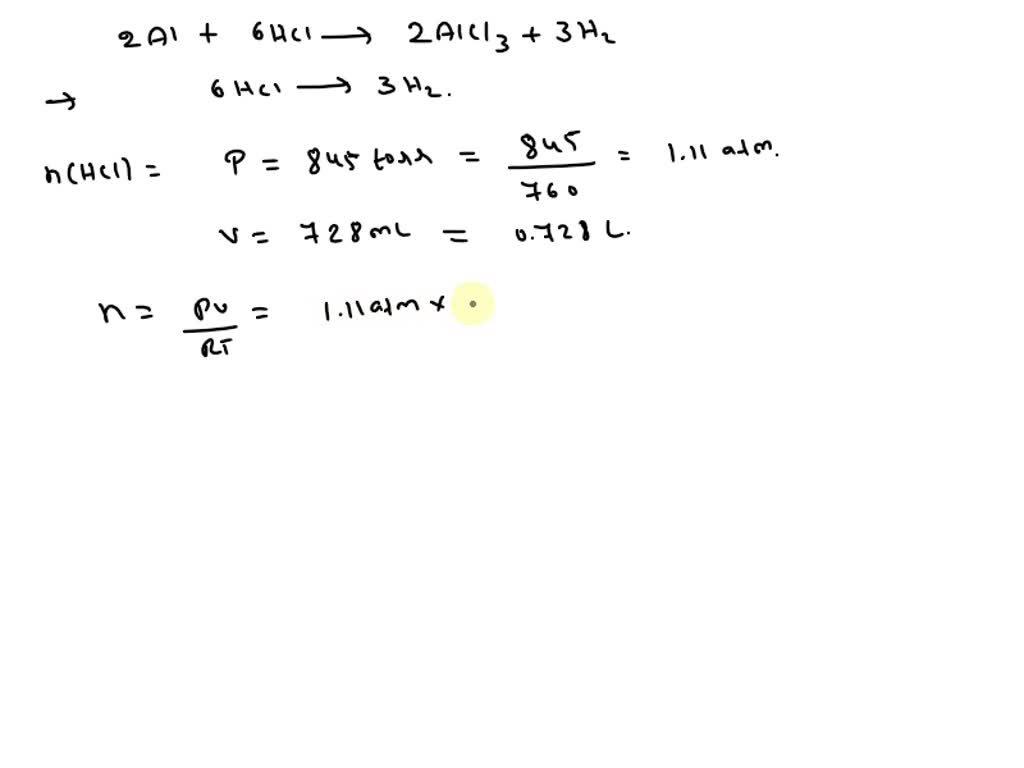 2Al + 6HCl → 2AlCl₃ + 3H₂
→ 6HCl → 3H₂.
n(HCl) = P = 845 torr = 845/760 = 1.11 atm.
V = 728mL = 0.728 L.
n = PV/RT = 1.11 atm ×